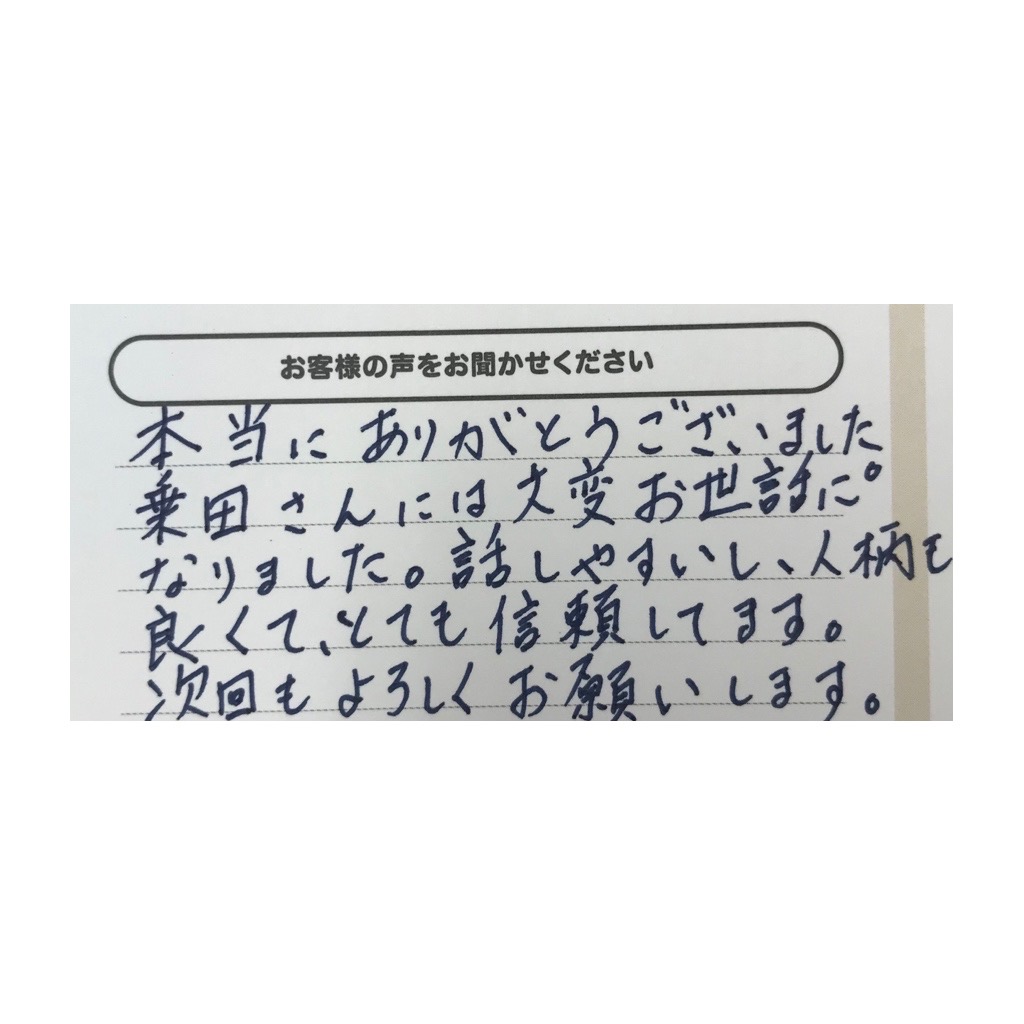 お客様の声をお聞かせください
本当にありがとうございました。
乗田さんには大変お世話に
なりました。話しやすいし、人柄も
良くて、とても信頼してます。
次回もよろしくお願いします。